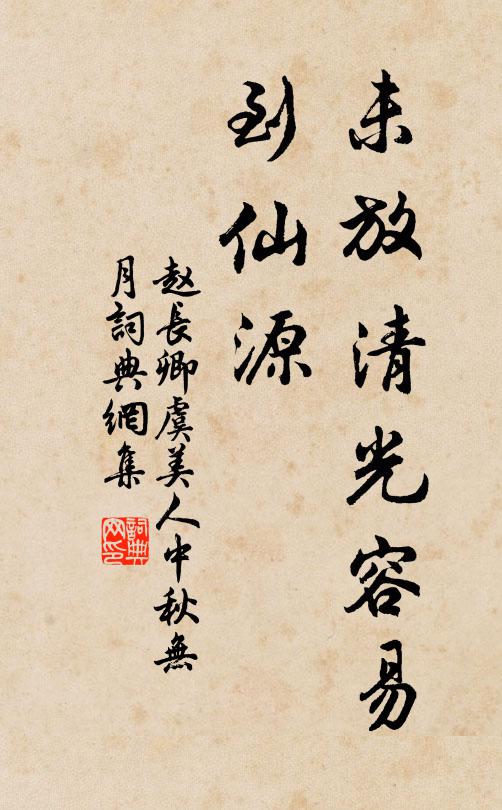 未放清光容易
到仙源
赵長卿虞美人中秋無
月詞典網集
詞典
网印